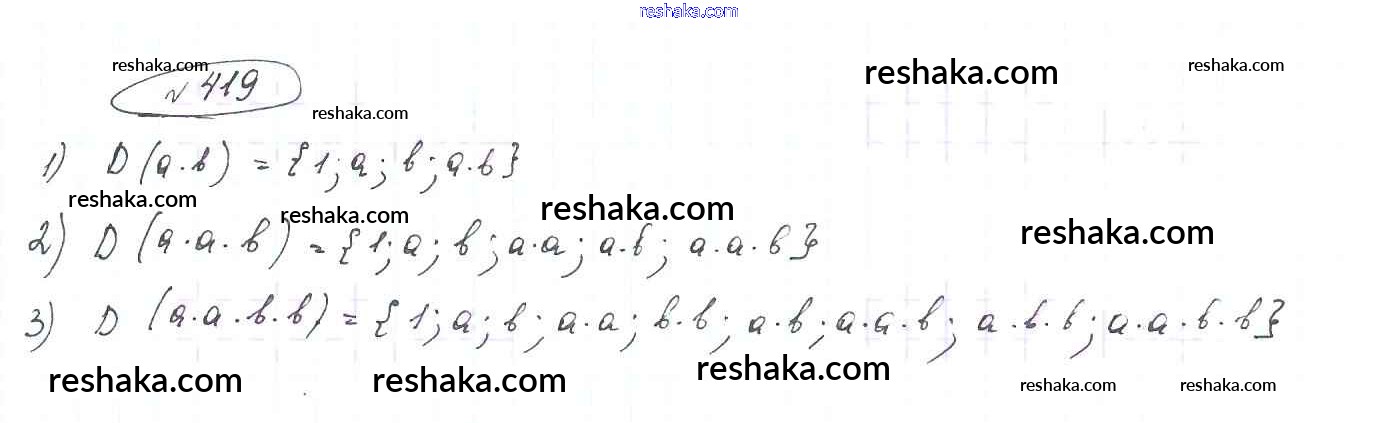 reshaka.com
reshaka.com
reshaka.com
reshaka.com
№ 419
reshaka.com
1) D(a·b) = {1; a; b; a·b}
reshaka.com
reshaka.com
reshaka.com
reshaka.com
2) D(a·a·b) = {1; a; b; a·a; a·b; a·a·b}
3) D(a·a·b·b) = {1; a; b; a·a; b·b; a·b; a·a·b; a·b·b; a·a·b·b}
reshaka.com
reshaka.com
reshaka.com
reshaka.com
reshaka.com